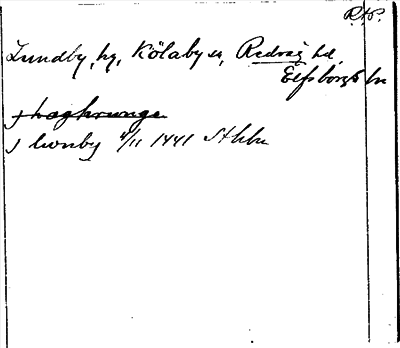 R.A.P.
Lundby, hg, Kölaby sn, Redväg hd,
Elfsborgs ln
j haghrunge
j lwnby 4/11 1441 Sthlm